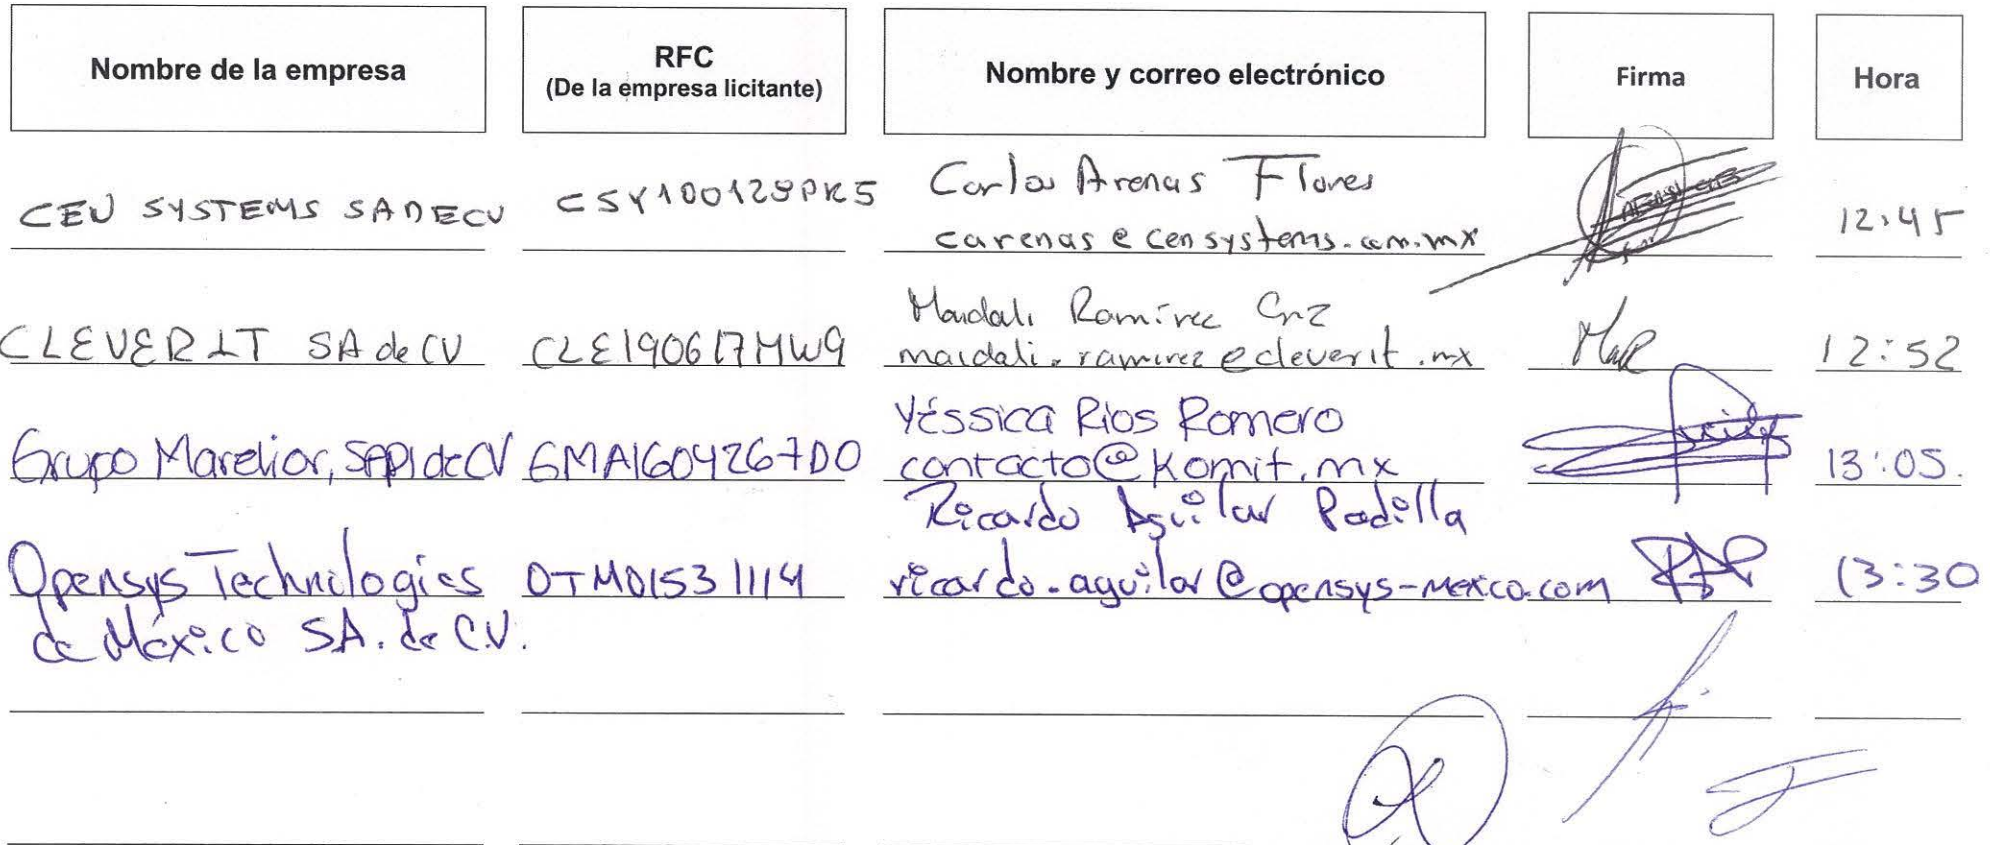 Nombre de la empresa
RFC
(De la empresa licitante)
Nombre y correo electrónico
Firma
Hora
CEN SYSTEMS SADECV
CSY100129PK5
Carlos Arenas Flores
carenas@censystems.com.mx
12:45
CLEVER IT SA de CV
CLE190617MW9
Maidali Ramírez Crz
maidali.ramirez@cleverit.mx
MaR
12:52
Grupo Marelior, SAPI de CV
GMA1604267D0
Yéssica Rios Romero
contacto@komit.mx
13:05.
Opensys Technologies
de México SA. de C.V.
OTM01531114
Ricardo Aguilar Padilla
ricardo.aguilar@opensys-mexico.com
RAP
13:30